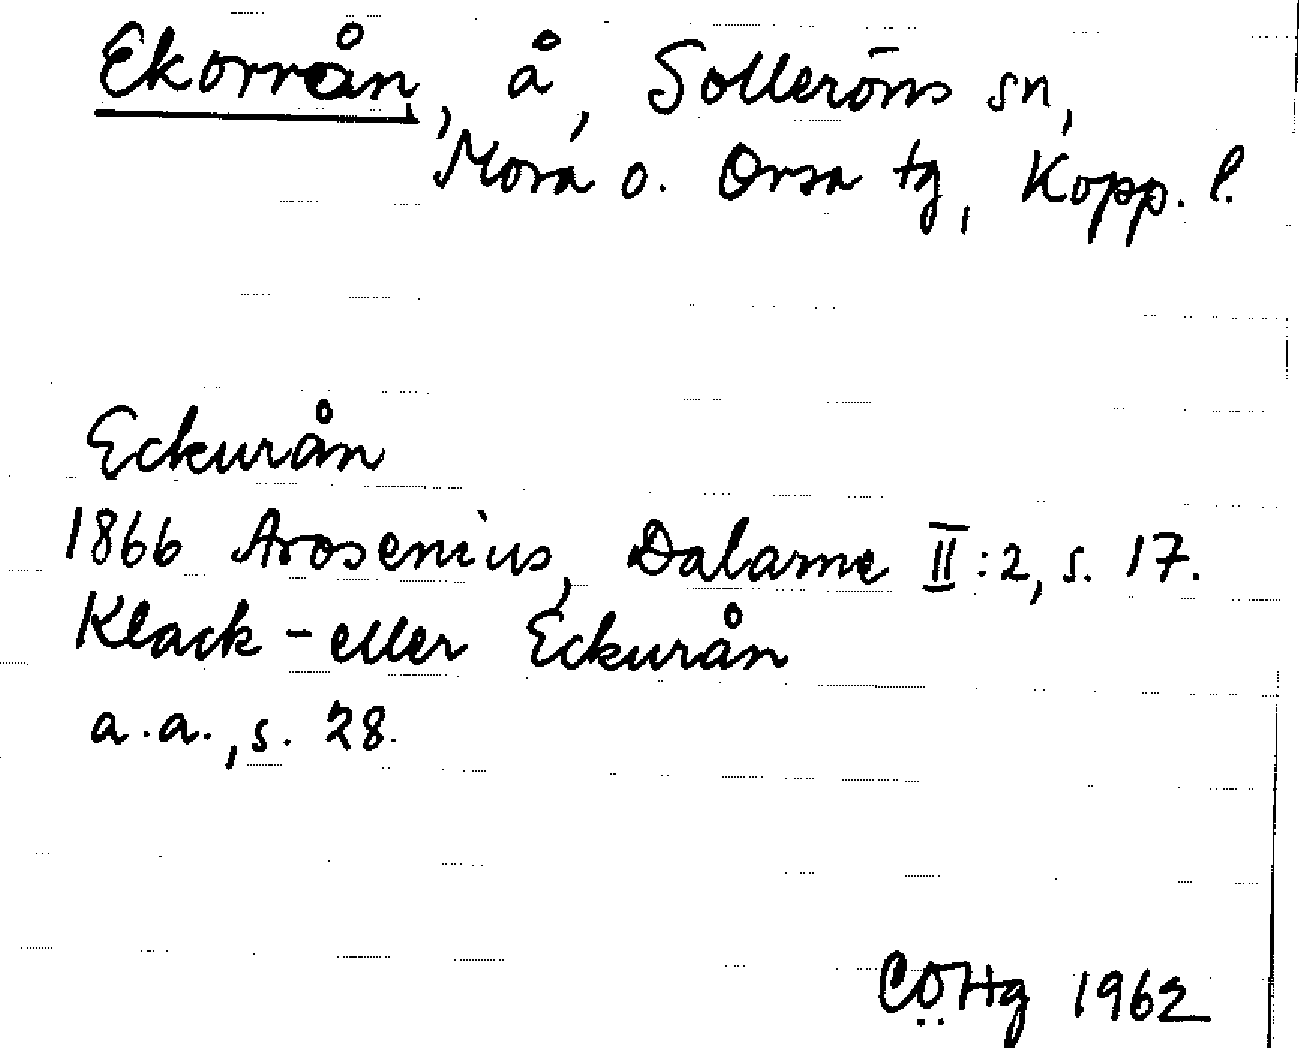 Ekorrån, å, Solleröns sn,
Mora o. Orsa tg, Kopp. l.
Eckurån
1866 Arosenius, Dalarne II:2, s. 17.
Klack- eller Eckurån
a.a., s. 28.
CÖHg 1962